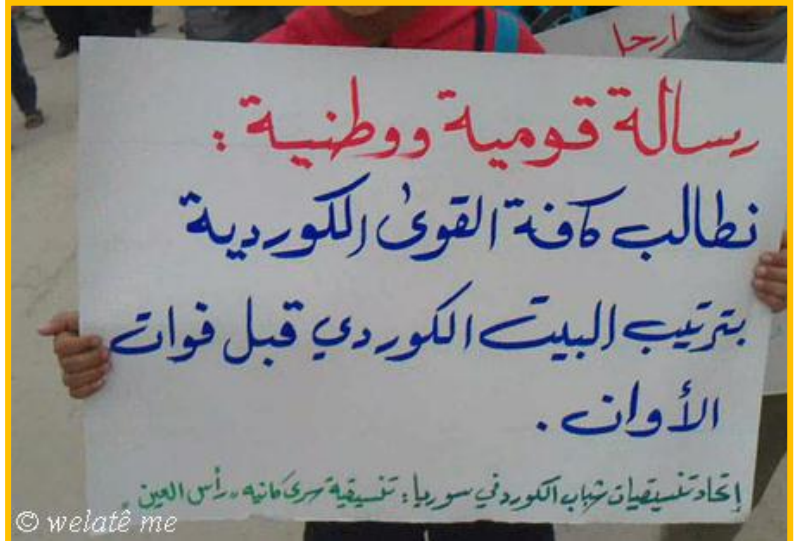 ارحل
رسالة قومية ووطنية :
نطالب كافة القوى الكوردية
بترتيب البيت الكوردي قبل فوات
الأوان .
إتحاد تنسيقيات شباب الكورد في سوريا : تنسيقية سري كانيه ، رأس العين .
© welatê me